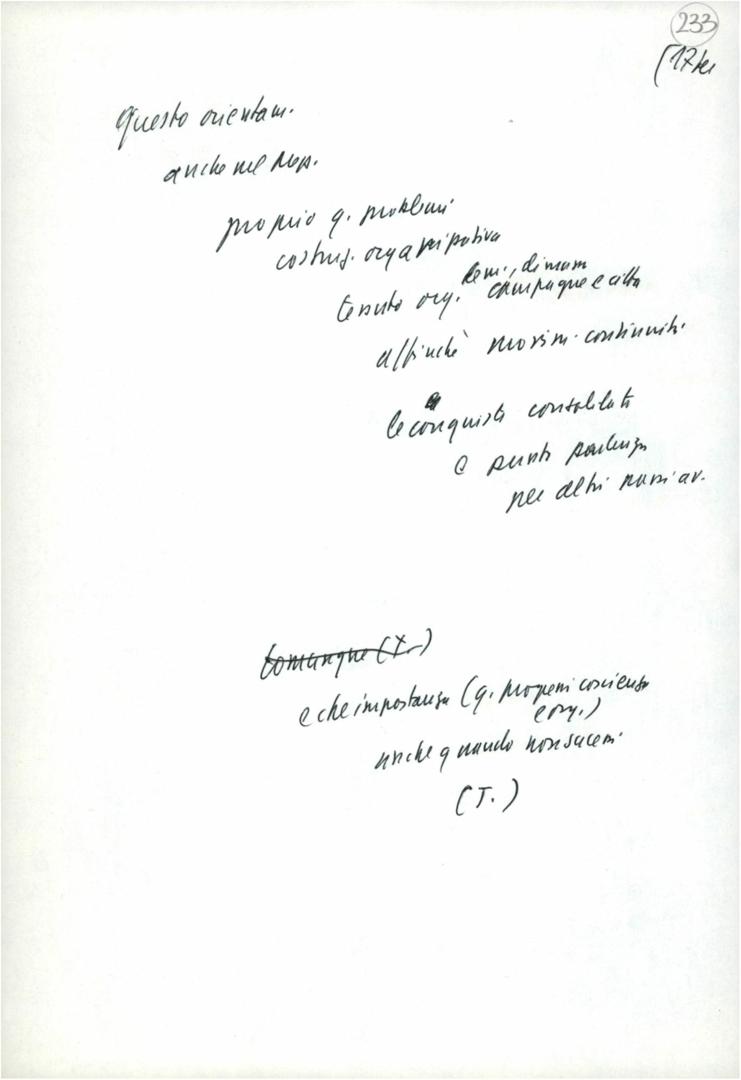 233
(17ter
Questo orientam.
anche nel Mezz.
proprio q. problemi
costruz. organizzativa
dem., di massa
tessuto org. campagne e città
affinchè movim. continuità
le conquiste consolidate
e punto partenza
per altri passi av.
Comunque (T.)
e che importanza (q. progressi coscienza
e org.)
anche quando non successi
(T.)